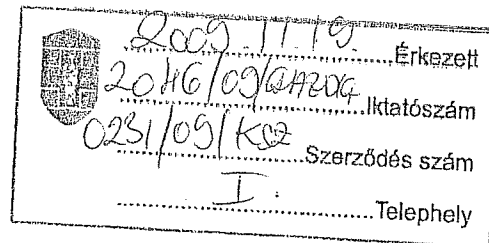 2009. 11. 19. Érkezett
2046/09/GAZDG Iktatószám
0231/09/KSZ Szerződés szám
I. Telephely